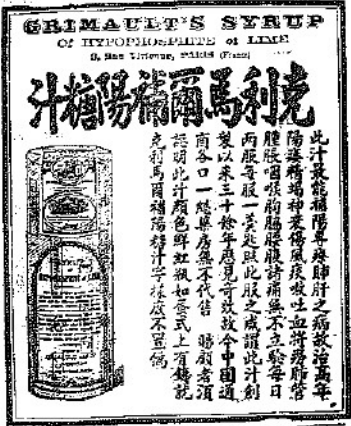 GRIMAULT'S SYRUP
OF HYPOPHOSPHITE of LIME
8, Rue Vivienne, PARIS (France)
克利馬爾補陽糖汁
此汁最能補陽專療肺肝之病故治高年
陽痿精竭神衰傷風痰嗽吐血癆肺管
脹咽喉胸膈腰腹諸痛無不立驗每日
兩服每服一羹匙照此服之咸謂此汁創
製以來三十餘年歷見奇效故今中國通
商各口一總藥房無不代售 賜顧者須
認明此汁顏色鮮紅瓶如式上有鑄就
克利馬爾補陽糖汁字樣庶不僞